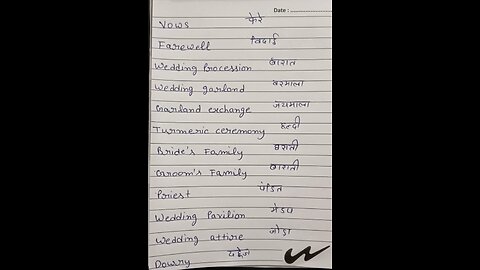 Date :
Vows फेरे
Farewell विदाई
Wedding Procession बारात
Wedding garland वरमाला
Garland exchange जयमाला
Turmeric ceremony हल्दी
Bride's Family घराती
Groom's Family बाराती
Priest पंडित
Wedding Pavilion मंडप
Wedding attire जोड़ा
Dowry दहेज